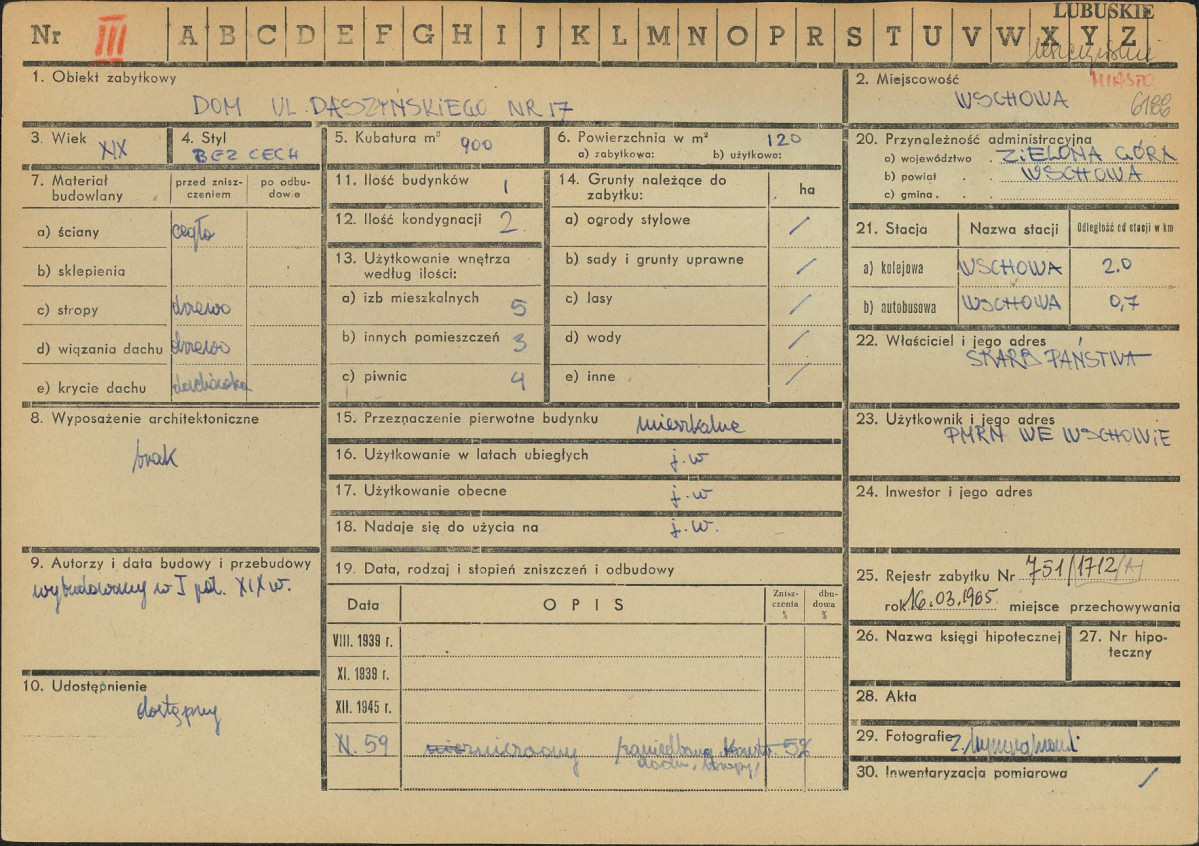 LUBUSKIE
Nr III A B C D E F G H I J K L M N O P R S T U V W X Y Z
1. Obiekt zabytkowy
DOM UL. DASZYŃSKIEGO NR 17
2. Miejscowość MIASTO
WSCHOWA 6188
3. Wiek XIX
4. Styl BEZ CECH
5. Kubatura m³ 900
6. Powierzchnia w m² 120
a) zabytkowa: b) użytkowa:
7. Materiał budowlany
przed zniszczeniem
po odbudowie
a) ściany cegła
b) sklepienia
c) stropy drzewo
d) wiązania dachu drzewo
e) krycie dachu dachówka
8. Wyposażenie architektoniczne
brak
9. Autorzy i data budowy i przebudowy
wybudowany w I poł. XIX w.
10. Udostępnienie
dostępny
11. Ilość budynków 1
12. Ilość kondygnacji 2
13. Użytkowanie wnętrza
według ilości:
a) izb mieszkalnych 5
b) innych pomieszczeń 3
c) piwnic 4
14. Grunty należące do
zabytku: ha
a) ogrody stylowe /
b) sady i grunty uprawne /
c) lasy /
d) wody /
e) inne /
15. Przeznaczenie pierwotne budynku mieszkalne
16. Użytkowanie w latach ubiegłych j.w
17. Użytkowanie obecne j.w
18. Nadaje się do użycia na j.w.
19. Data, rodzaj i stopień zniszczeń i odbudowy
Data OPIS Zniszczenia % dbudowa %
VIII. 1939 r.
XI. 1939 r.
XII. 1945 r.
XI. 59 5%
dachu,
20. Przynależność administracyjna
a) województwo . ZIELONA GÓRA
b) powiat . . WSCHOWA
c) gmina . .
21. Stacja Nazwa stacji Odległość od stacji w km
a) kolejowa WSCHOWA 2.0
b) autobusowa WSCHOWA 0,7
22. Właściciel i jego adres
SKARB PAŃSTWA
23. Użytkownik i jego adres
PMRN WE WSCHOWIE
24. Inwestor i jego adres
25. Rejestr zabytku Nr 751/1712/A
rok 16.03.1965 miejsce przechowywania
26. Nazwa księgi hipotecznej
27. Nr hipoteczny
28. Akta
29. Fotografie
30. Inwentaryzacja pomiarowa /